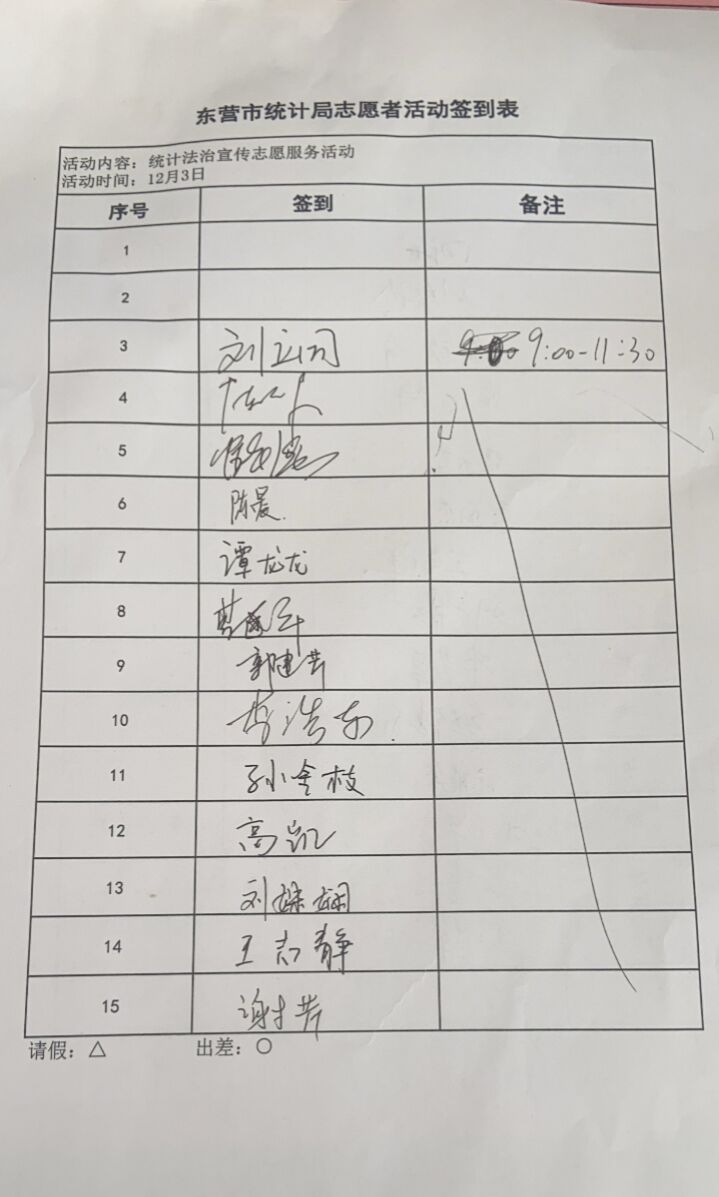 东营市统计局志愿者活动签到表
活动内容：统计法治宣传志愿服务活动
活动时间：12月3日
序号 签到 备注
1
2
3 刘 9:00-11:30
4
5
6 陈晨
7 谭龙龙
8
9 郭建芳
10 李浩东
11 孙金枝
12 高凯
13 刘姝娴
14 王志静
15 谢芳
请假：△ 出差：○